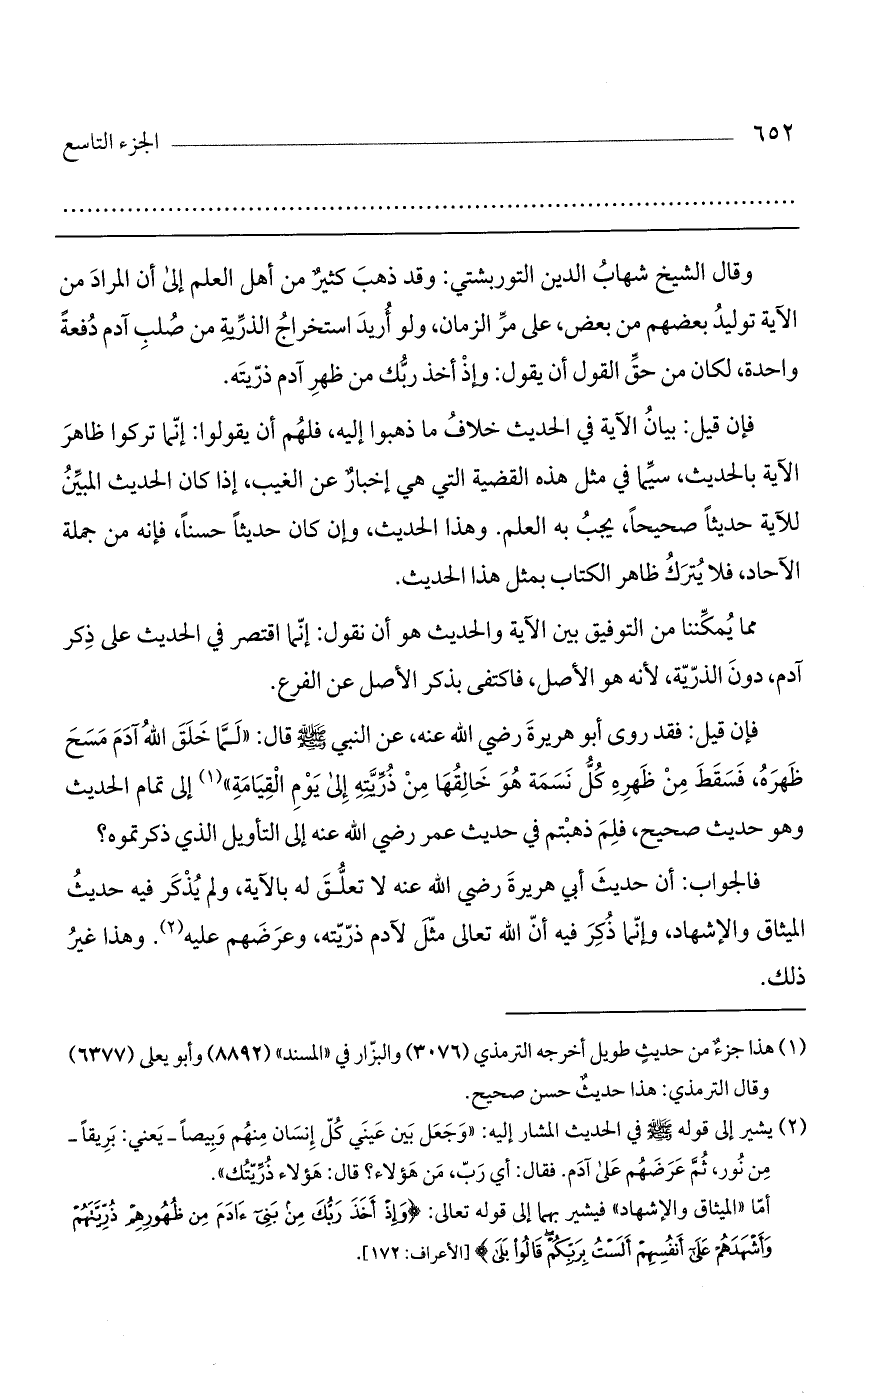 ٦٥٢ الجزء التاسع
وقال الشيخ شهابُ الدين التوربشتي: وقد ذهبَ كثيرٌ من أهل العلم إلىٰ أن المرادَ من
الآية توليدُ بعضهم من بعض، على مرِّ الزمان، ولو أُريدَ استخراجُ الذرِّيةِ من صُلبِ آدم دُفعةً
واحدة، لكان من حقِّ القول أن يقول: وإذْ أخذ ربُّك من ظهرِ آدم ذرّيتَه.
فإن قيل: بيانُ الآية في الحديث خلافُ ما ذهبوا إليه، فلهُم أن يقولوا: إنّما تركوا ظاهرَ
الآية بالحديث، سيِّما في مثل هذه القضية التي هي إخبارٌ عن الغيب، إذا كان الحديث المبيِّنُ
للآية حديثاً صحيحاً، يجبُ به العلم. وهذا الحديث، وإن كان حديثاً حسناً، فإنه من جملة
الآحاد، فلا يُترَكُ ظاهر الكتاب بمثل هذا الحديث.
مما يُمكِّننا من التوفيق بين الآية والحديث هو أن نقول: إنّما اقتصر في الحديث على ذِكر
آدم، دونَ الذرّيّة، لأنه هو الأصل، فاكتفى بذكر الأصل عن الفرع.
فإن قيل: فقد روى أبو هريرةَ رضي الله عنه، عن النبي ﷺ قال: «لَـمَّا خَلَقَ اللهُ آدَمَ مَسَحَ
ظَهرَهُ، فَسَقَطَ مِنْ ظَهرِهِ كُلُّ نَسَمَة هُوَ خَالِقُهَا مِنْ ذُرِّيَّتِهِ إِلىٰ يَوْمِ الْقِيَامَةِ»(١) إلى تمام الحديث
وهو حديث صحيح، فلِمَ ذهبْتم في حديث عمر رضي الله عنه إلى التأويل الذي ذكرتموه؟
فالجواب: أن حديثَ أبي هريرةَ رضي الله عنه لا تعلُّـقَ له بالآية، ولم يُذْكَر فيه حديثُ
الميثاق والإشهاد، وإنّما ذُكِرَ فيه أنّ الله تعالى مثّلَ لآدم ذرّيّته، وعرَضَهم عليه(٢). وهذا غيرُ
ذلك.
(١) هذا جزءٌ من حديثٍ طويل أخرجه الترمذي (٣٠٧٦) والبزّار في «المسند» (٨٨٩٢) وأبو يعلى (٦٣٧٧)
وقال الترمذي: هذا حديثٌ حسن صحيح.
(٢) يشير إلى قوله ﷺ في الحديث المشار إليه: «وَجَعَل بَين عَينَي كُلّ إِنسَان مِنهُم وَبِيصاً ـ يَعني: بَرِيقاً ـ
مِن نُور، ثُمَّ عَرَضَهُم عَلىٰ آدَم. فقال: أي رَبّ، مَن هَؤلاء؟ قال: هَؤلاء ذُرِّيَّتُك».
أمّا «الميثاق والإشهاد» فيشير بهما إلى قوله تعالى: ﴿وَإِذْ أَخَذَ رَبُّكَ مِنۢ بَنِىٓ ءَادَمَ مِن ظُهُورِهِمْ ذُرِّيَّتَهُمْ
وَأَشْهَدَهُمْ عَلَىٰٓ أَنفُسِهِمْ أَلَسْتُ بِرَبِّكُمْۖ قَالُوا۟ بَلَىٰ﴾ [الأعراف: ١٧٢].